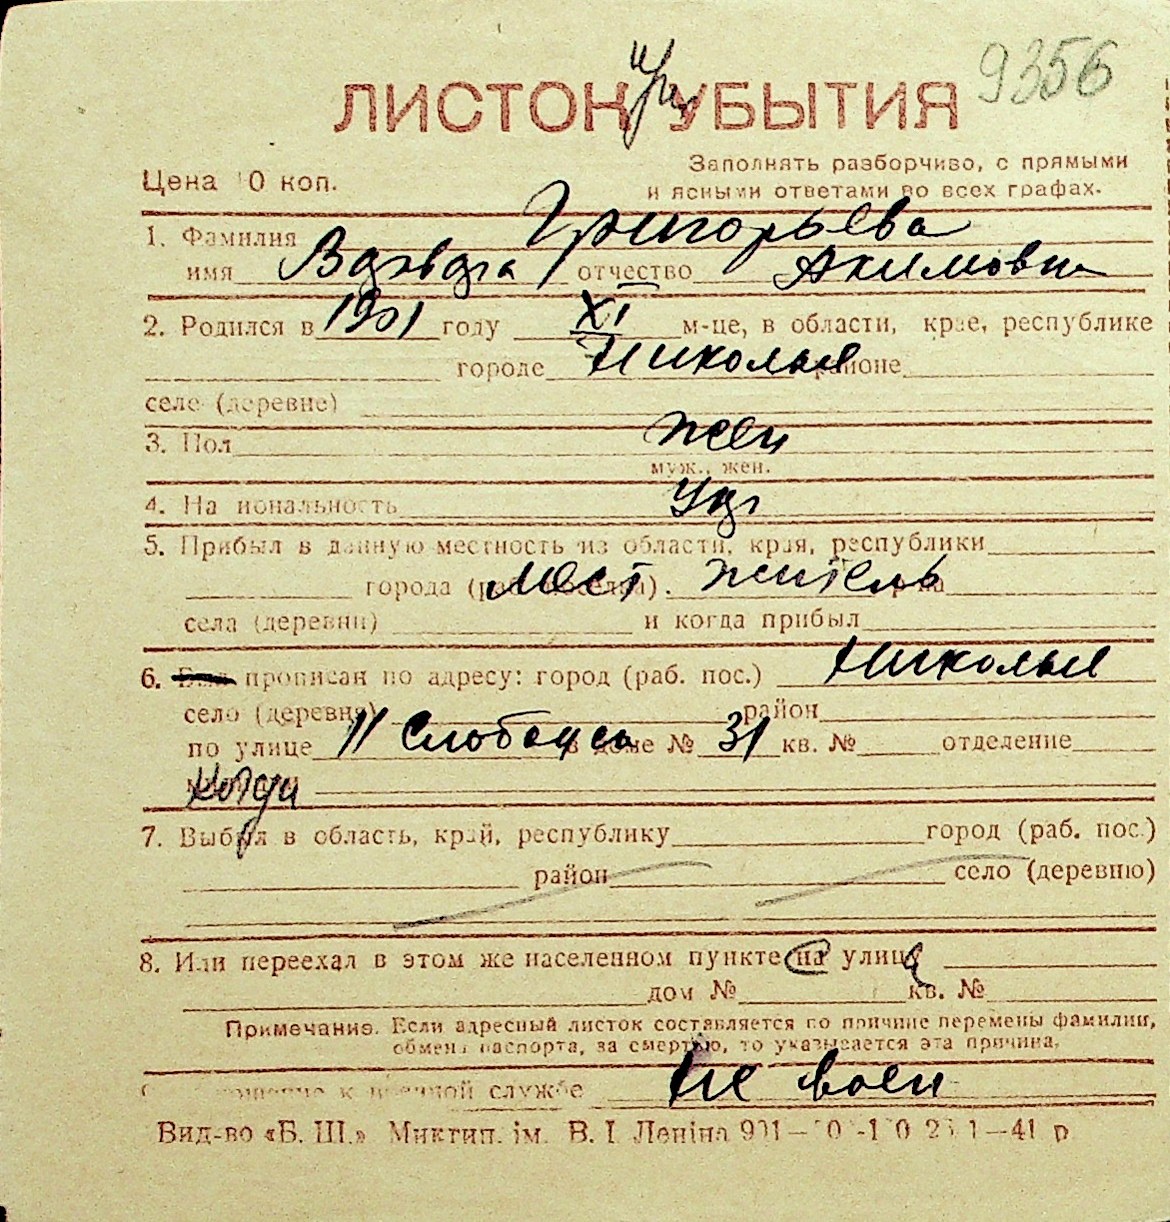 9356
ЛИСТОК УБЫТИЯ
Заполнять разборчиво, с прямыми
Цена 10 коп.
и ясными ответами во всех графах.
1. Фамилия Григорьева
имя отчество Акимовна
2. Родился в 1901 году XI м-це, в области, крае, республике
городе Николаев районе
селе (деревне)
3. Пол жен
муж., жен.
4. Национальность
5. Прибыл в данную местность из области, края, республики
города (раб. поселка). мест. житель р-на
села (деревни) и когда прибыл
6. прописан по адресу: город (раб. пос.) Николаев
село (деревня) район
по улице 11 Слободск в доме № 31 кв. № отделение
Когда
7. Выбыл в область, край, республику город (раб. пос.)
район село (деревню)
8. Или переехал в этом же населенном пункте на улицу
дом № кв. №
Примечание. Если адресный листок составляется по причине перемены фамилии,
обмена паспорта, за смертью, то указывается эта причина.
к военной службе Не воен
Вид-во «Б. Ш.» Миктип. ім. В. І. Леніна